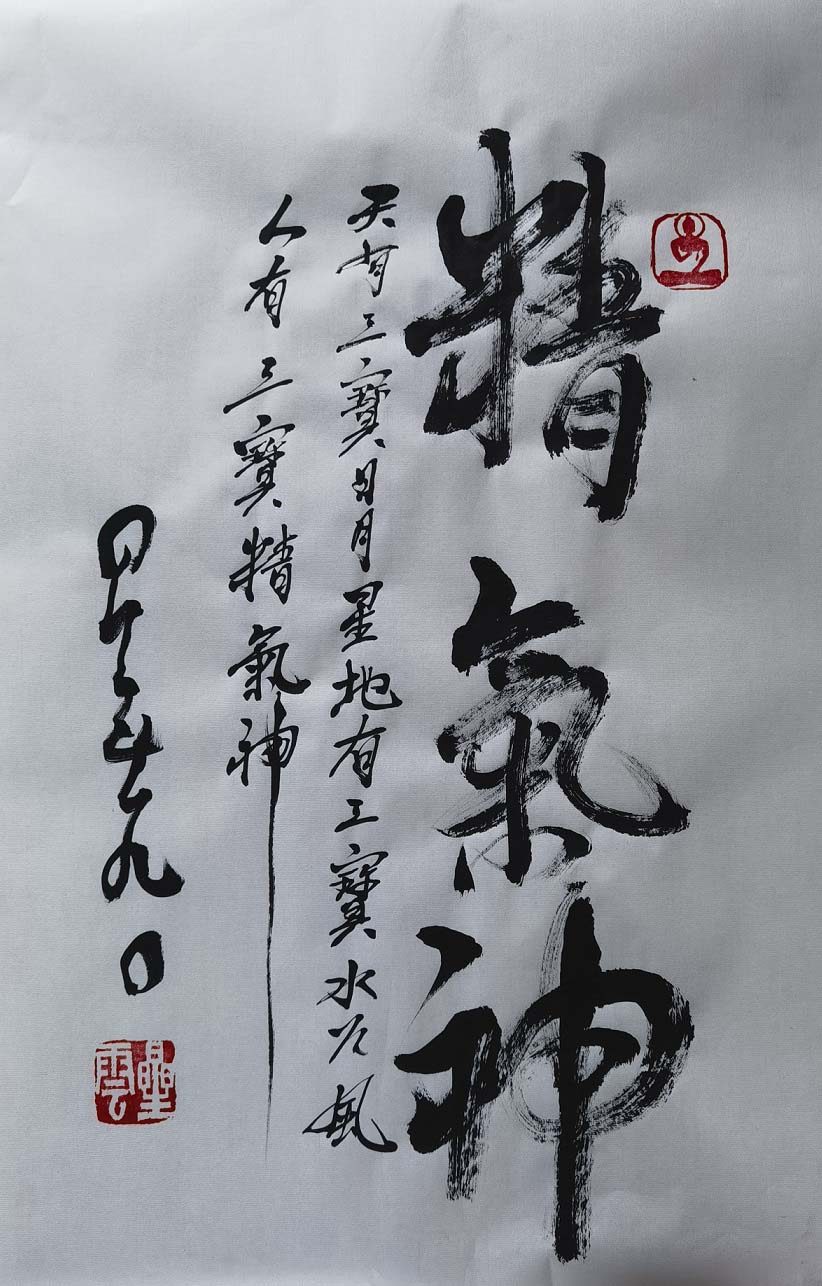 精氣神
天有三寶日月星地有三寶水火風
人有三寶精氣神
九〇
星雲